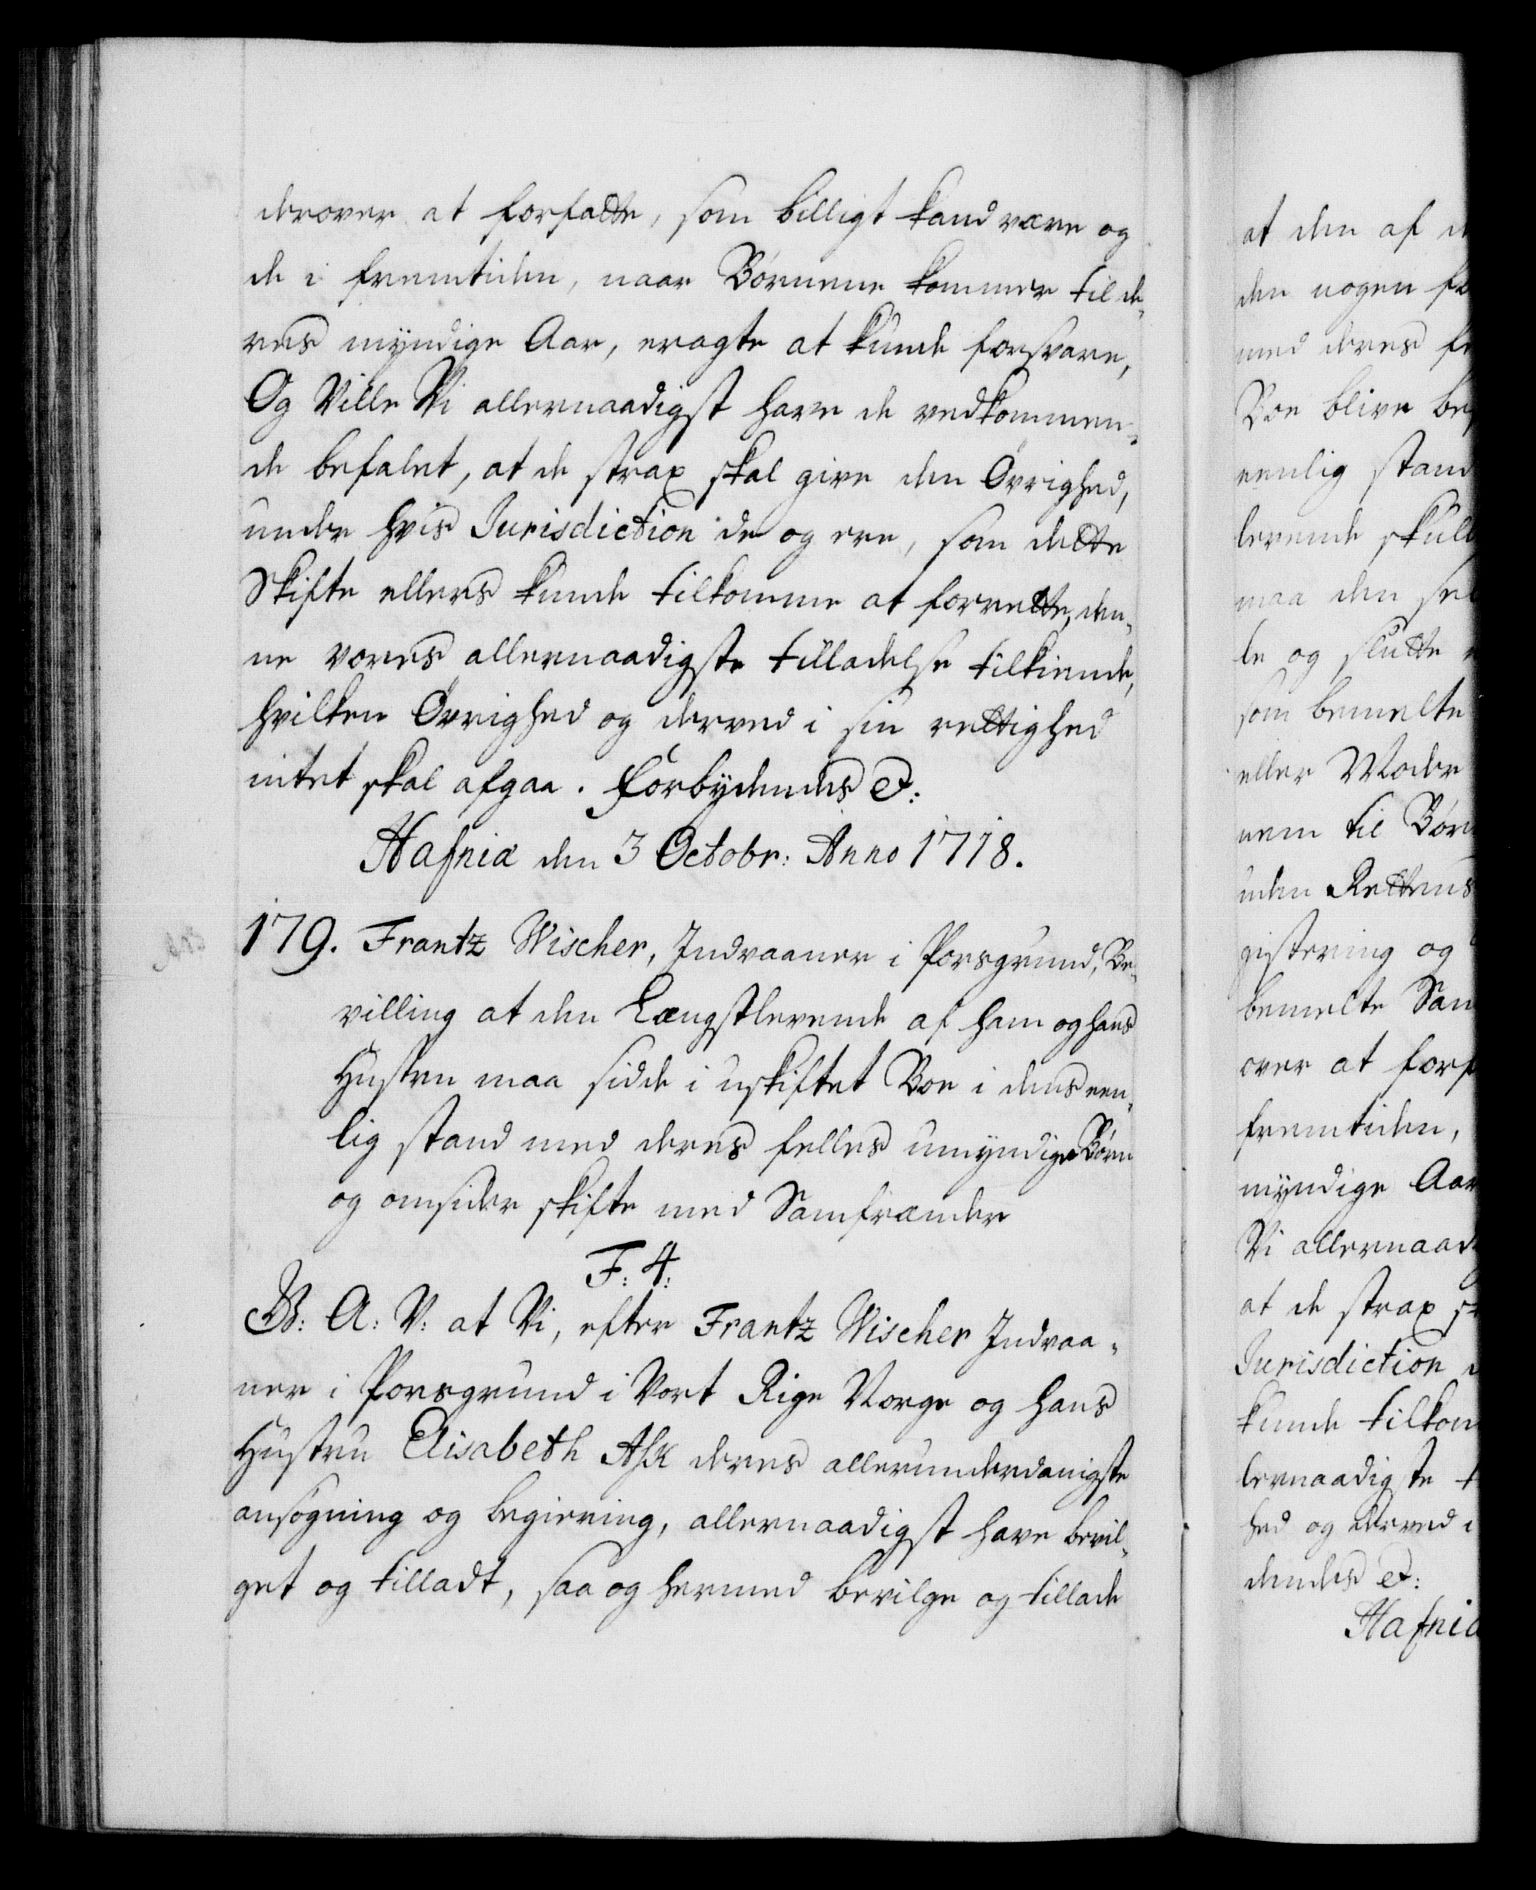 derover at forfatte, som billigt kand være og
de i fremtiden, naar Børnene kommer til de-
res myndige Aar, eragte at kunde forsvare,
Og Ville Vi allernaadigst have de vedkommen-
de befalet, at de strax skal give den Øvrighed,
under hvis Jurisdiction de og ere, som dette
Skifte ellers kunde tilkomme at forrette, den-
ne vores allernaadigste tilladelse tilkiende,
hvilken Øvrighed og derved i sin rettighed
intet skal afgaa. Forbydendes &:
Hafniæ den 3 Octobr: Anno 1718.
179. Frantz Wischer, Indvaaner i Porsgrund, Be-
villing at den Længstlevende af ham og hans
Hustru maa sidde i uskiftet Boe i dens een-
lig stand med deres felles umyndige Børn
og omsider skifte med Samfrænder
F: 4:
W: A: V: at Vi, efter Frantz Wischer Indvaa-
ner i Porsgrund i Vort Rige Norge og hans
Hustru Elisabeth Ask deres allerunderdanigste
ansøgning og begiering, allernaadigst have bevil-
get og tilladt, saa og hermed bevilge og tillade
at den af
den nogen
med deres
Boe blive
eenlig stand
levende
maa den
le og slutte
som bemelte
eller Moder
nem til
uden Rettens
gistering og
bemelte
over at
fremtiden,
myndige Aar
Vi
at de strax
Jurisdiction
kunde
hed og derved i
dendes &: